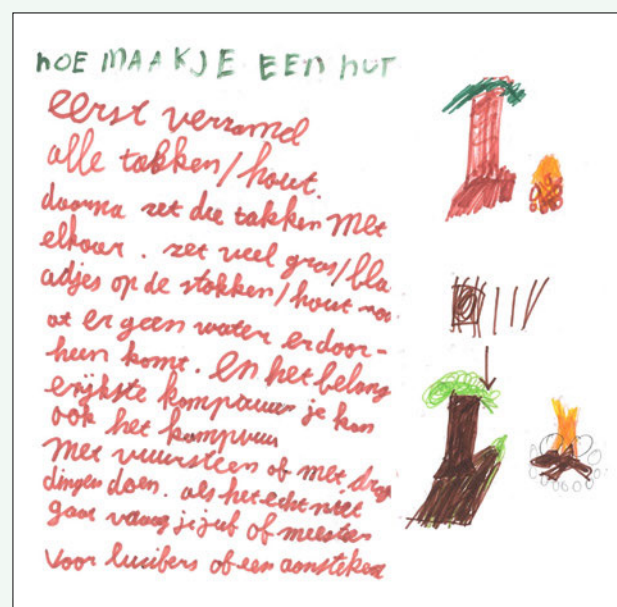 hOE MAAKJE EEn huT
eerst verzamd
alle takken/hout.
daarna zet die takken Met
elkaar. zet veel gras/bla
adjes op de stokken/hout
at er geen water erdoor-
heen komt. En het belang
erijkste kampvuur je kan
ook het kampvuur
Met vuursteen of met
dingen doen. als het echt niet
gaat vraag je juf of meester
Voor lucibers of een aansteken